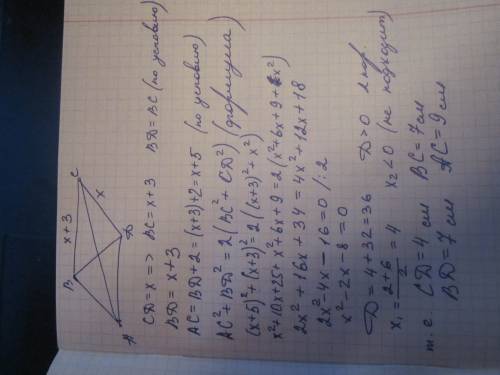 B
x + 3
C
x
A
D
CD = x => BC = x + 3    BD = BC (по условию)
BD = x + 3
AC = BD + 2 = (x+3) + 2 = x + 5    (по условию)
AC² + BD² = 2 (BC² + CD²)    (формула)
(x+5)² + (x+3)² = 2 ((x+3)² + x²)
x² + 10x + 25 + x² + 6x + 9 = 2 (x² + 6x + 9 + x²)
2x² + 16x + 34 = 4x² + 12x + 18
2x² - 4x - 16 = 0 /: 2
x² - 2x - 8 = 0
D = 4 + 32 = 36    D > 0    2 кор.
x₁ = 2+6/2 = 4    x₂ < 0 (не подходит)
т.е. CD = 4 см    BC = 7 см
BD = 7 см    AC = 9 см